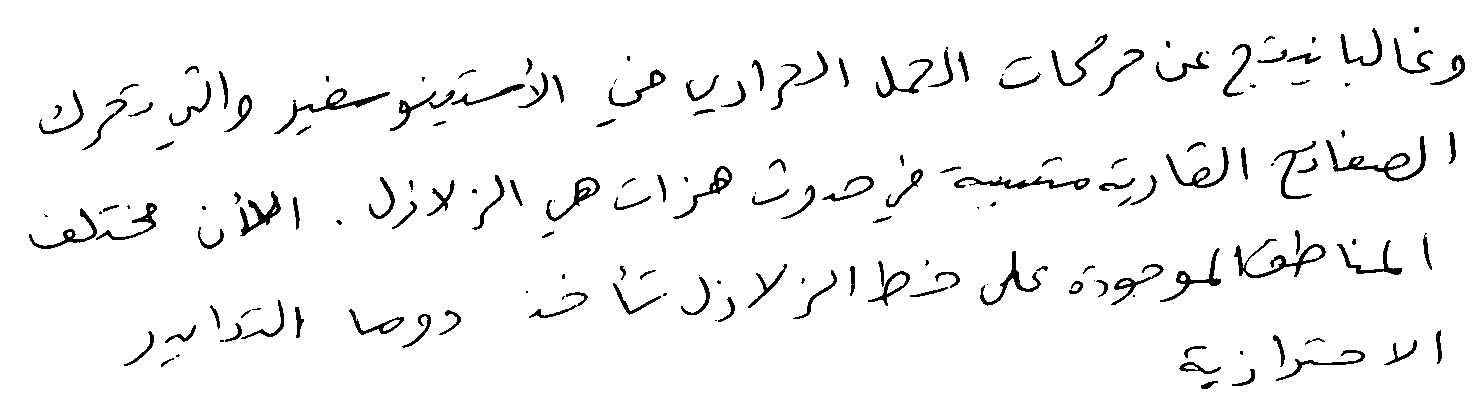 وغالبا ينتج عن حركات الحمل الحراري في الأستينوسفير والتي تحرك
الصفائح القارية متسببة في حدوث هزات هي الزلازل. الأن مختلف
المناطق الموجودة على خط الزلازل تأخذ دوما التدابير
الاحترازية